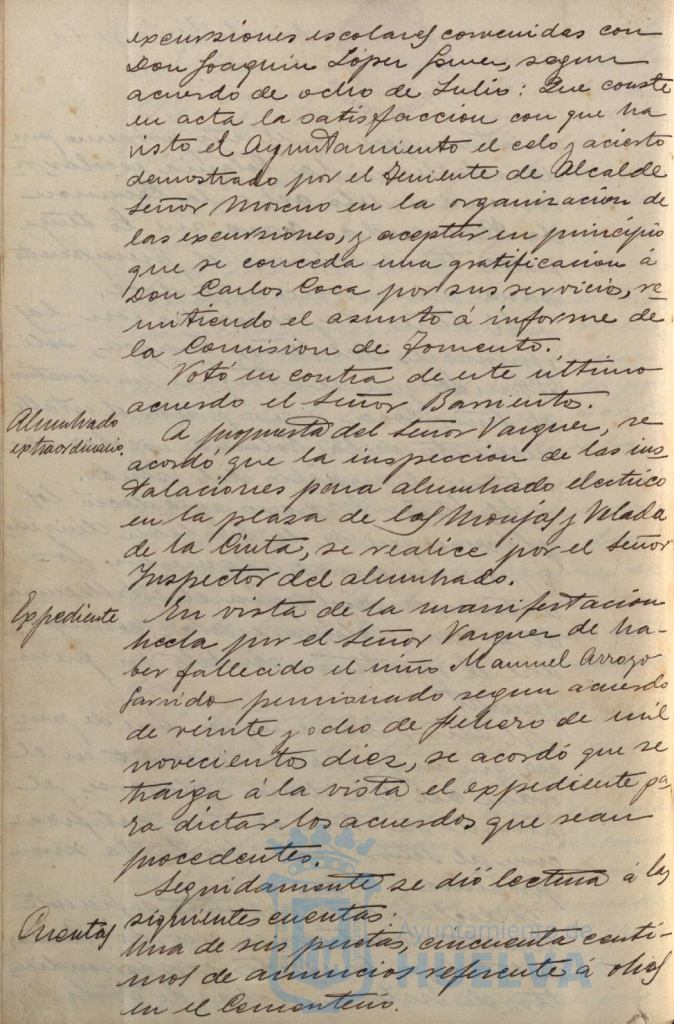 excursiones escolares convenidas con
Don Joaquin López Gomez, segun
acuerdo de ocho de Julio: Que conste
en acta la satisfaccion con que ha
visto el Ayuntamiento el celo y acierto
demostrado por el Teniente de Alcalde
Señor Moreno en la organizacion de
las excursiones, y aceptar en principio
que se conceda una gratificacion á
Don Carlos Coca por sus servicio, re-
mitiendo el asunto á informe de
la Comision de Fomento.
Votó en contra de este último
acuerdo el Señor Barriento.
Alumbrado
extraordinario.
A propuesta del Señor Vazquez, se
acordó que la inspeccion de las ins-
talaciones para alumbrado electrico
en la plaza de las Monjas y Velada
de la Cinta, se realice por el Señor
Inspector del alumbrado.
Expediente
En vista de la manifestacion
hecha por el Señor Vazquez de ha-
ber fallecido el niño Manuel Arroyo
Garrido pensionado segun acuerdo
de veinte y ocho de Febrero de mil
novecientos diez, se acordó que se
traiga á la vista el expediente pa-
ra dictar los acuerdos que sean
procedentes.
Seguidamente se dió lectura á las
Cuentas
siguientes cuentas:
Una de seis pesetas, cincuenta centi-
mos de anuncios referente á
en el Cementerio.
Ayuntamiento de
HUELVA